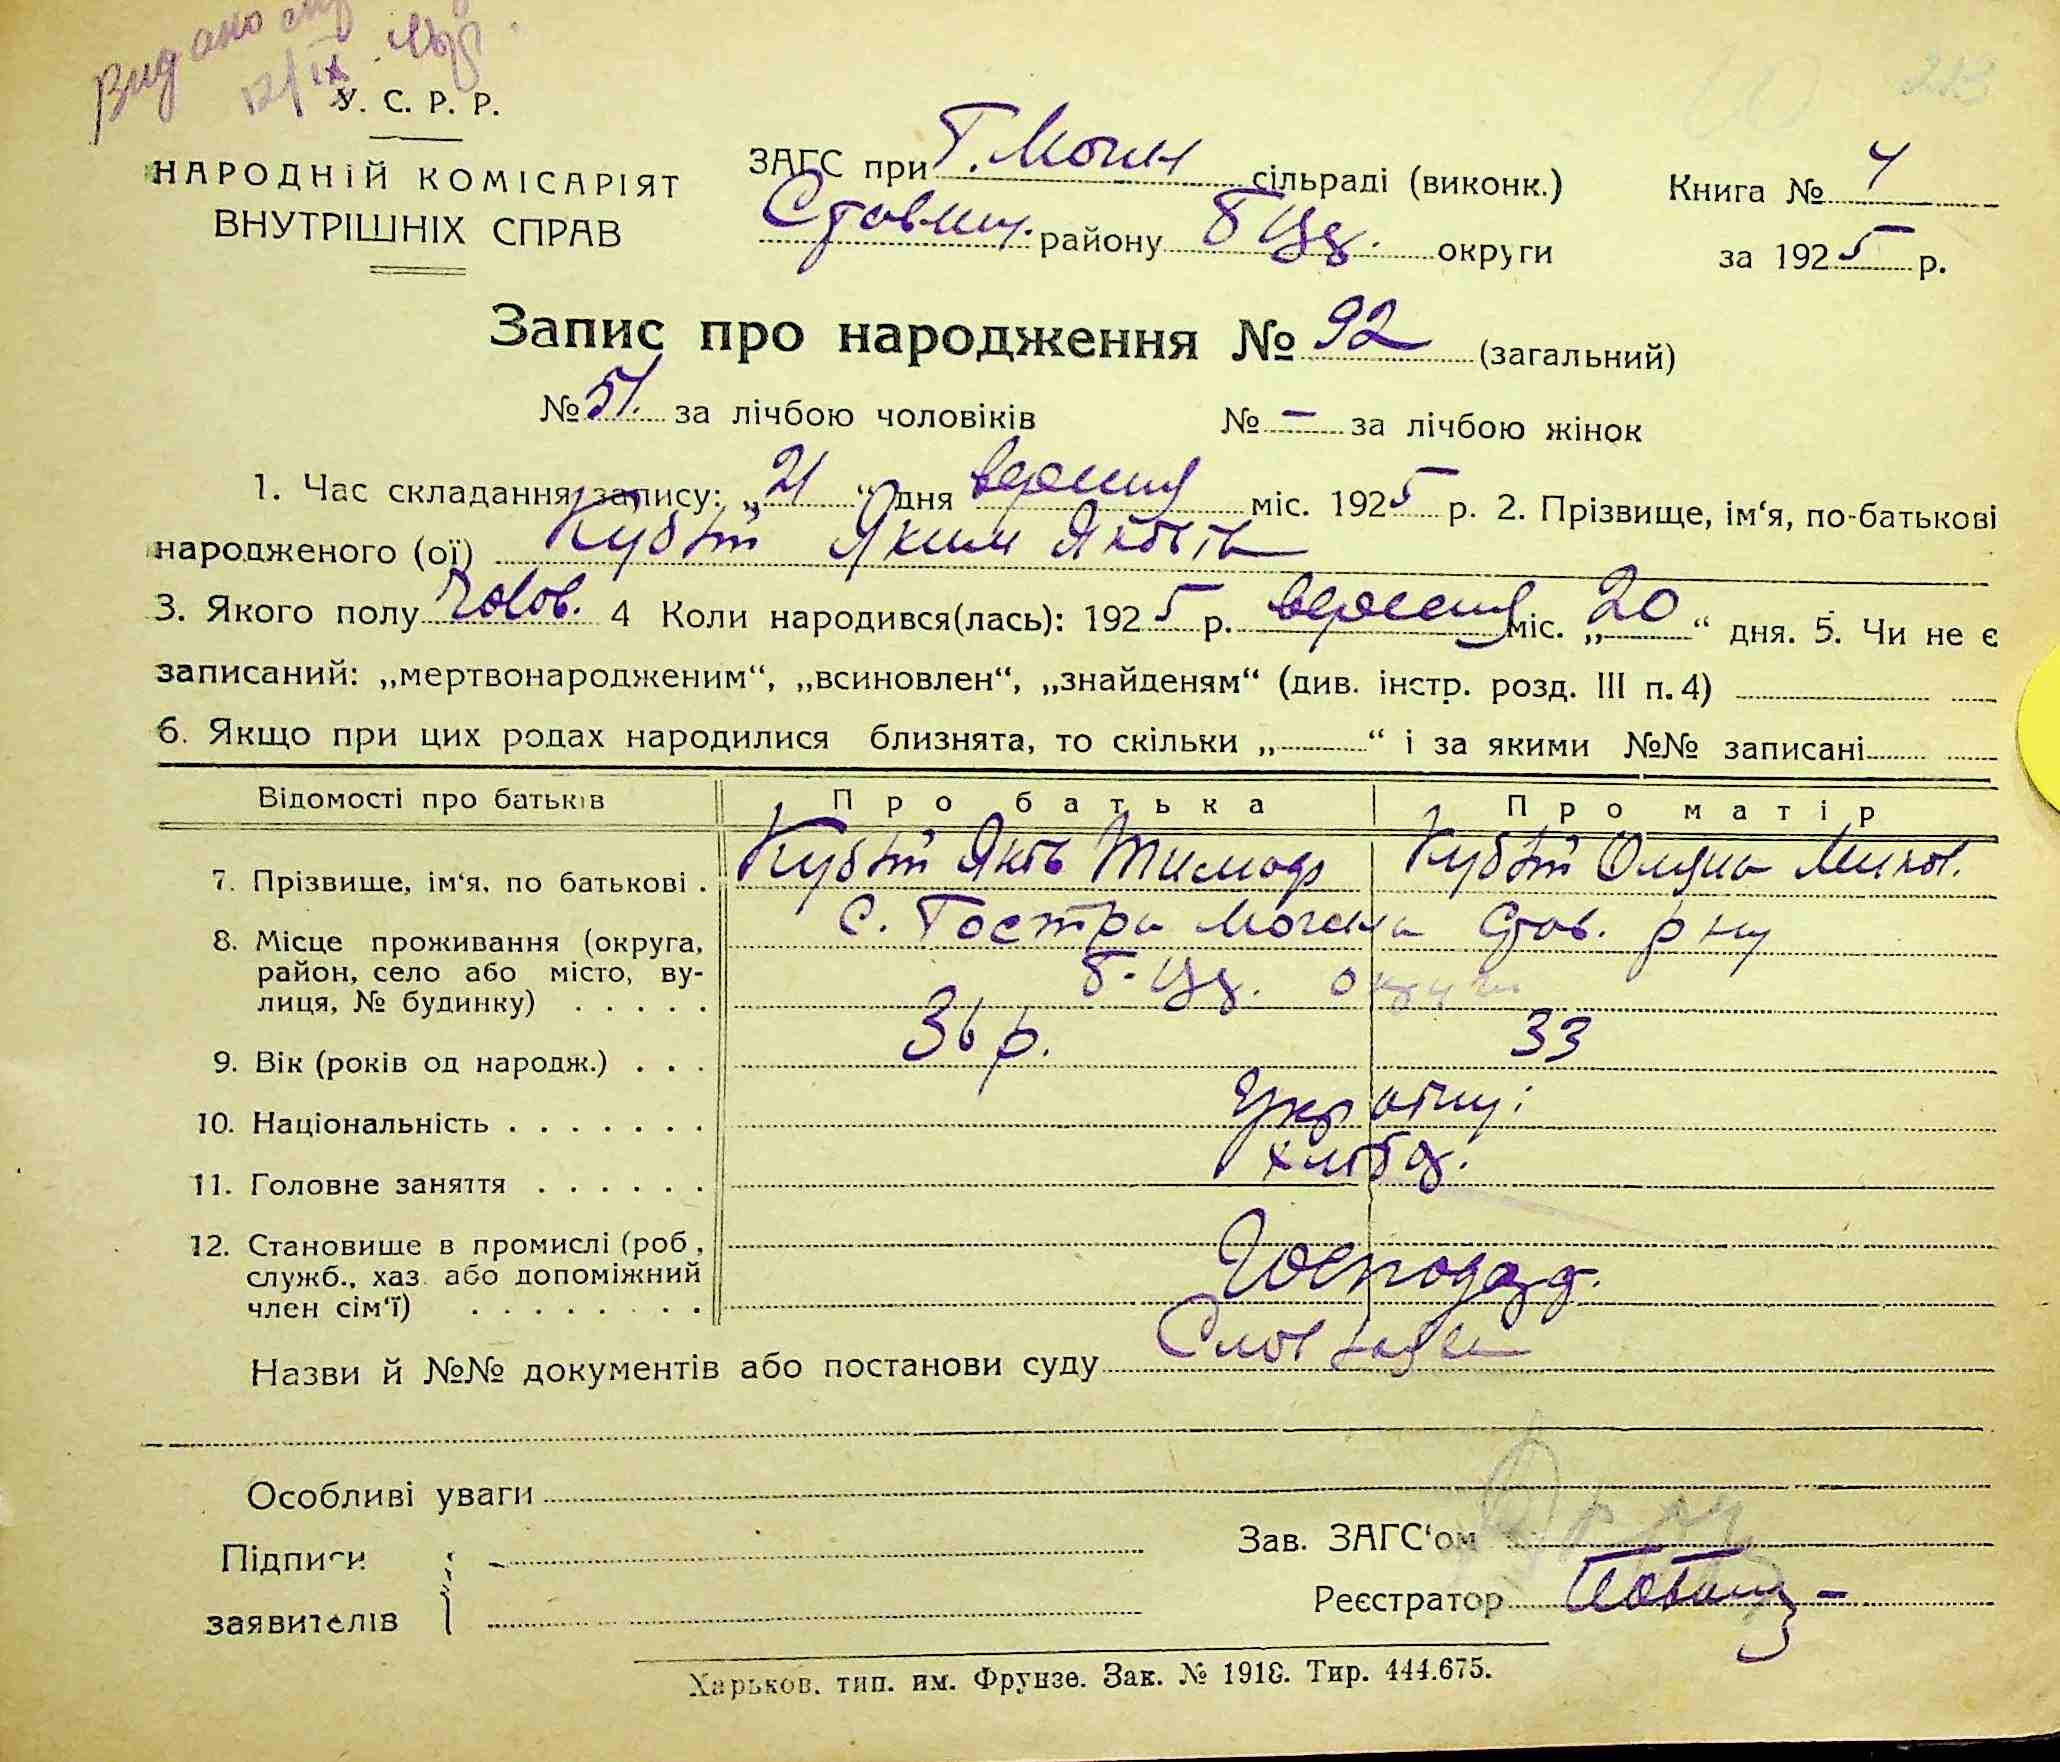 Видано
12/IX
213
У. С. Р. Р.
НАРОДНІЙ КОМІСАРІЯТ
ВНУТРІШНІХ СПРАВ
ЗАГС при Г. Могил сільраді (виконк.)
Ставищ. району Б Цер. округи
Книга № 4
за 1925 р.
Запис про народження № 92 (загальний)
№ 51. за лічбою чоловіків № – за лічбою жінок
1. Час складання запису: „21“ дня вересня міс. 1925 р. 2. Прізвище, ім‘я, по-батькові
народженого (ої) Яким Яковів
3. Якого полу Чолов. 4 Коли народився(лась): 1925 р. вересня міс. „20“ дня. 5. Чи не є
записаний: „мертвонародженим“, „всиновлен“, „знайденям“ (див. інстр. розд. III п. 4)
6. Якщо при цих родах народилися близнята, то скільки „ “ і за якими №№ записані
Відомості про батьків Про батька Про матір
7. Прізвище, ім‘я, по батькові . Яків Тимоф Микол.
8. Місце проживання (округа, с. Гостра Могила Став. р ну
район, село або місто, ву- Б. Цер. округи
лиця, № будинку) . . . . .
9. Вік (років од народж.) . . . 36 р. 33
10. Національність . . . . . . . Україн;
11. Головне заняття . . . . . . хлібор.
12. Становище в промислі (роб., Господар.
служб., хаз. або допоміжний
член сім‘ї) . . . . . . . .
Назви й №№ документів або постанови суду
Особливі уваги
Підписи
заявителів
Зав. ЗАГС‘ом
Реєстратор
Харьков. тип. им. Фрунзе. Зак. № 1918. Тир. 444.675.